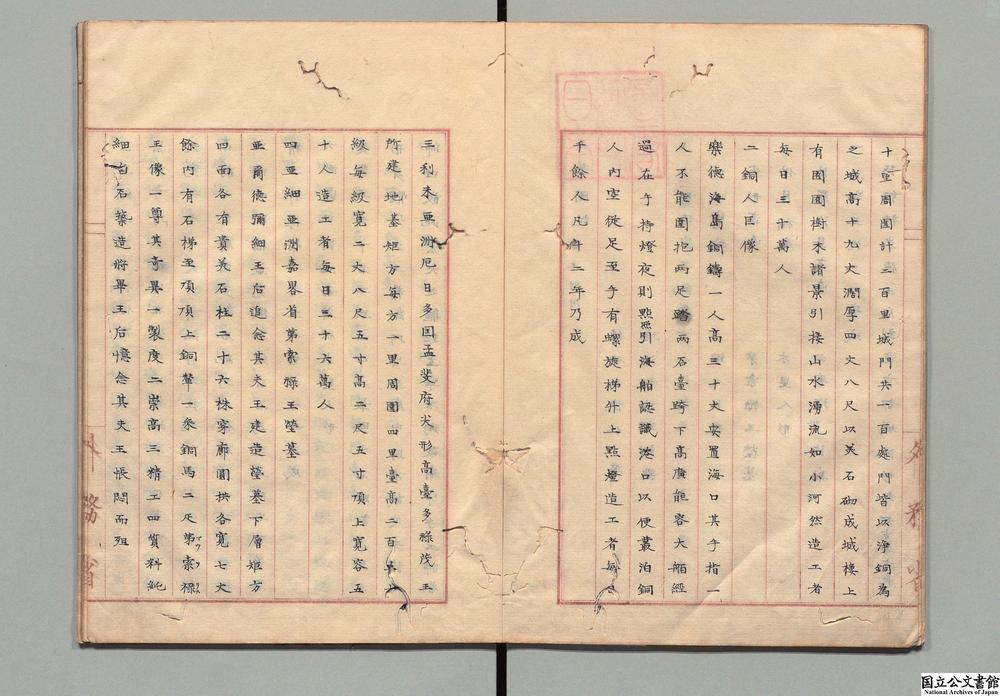 十重周圍計三百里城門共一百處門皆以淨銅為
之城高十九丈濶厚四丈八尺以美石砌成城樓上
有囿園樹木諸景引接山水湧流如小河然造工者
每日三十萬人
二銅人巨像
樂德海島銅鑄一人高三十丈安置海口其手指一
人不能圍抱兩足踏兩石臺跨下高廣能容大舶經
過左手持燈夜則點照引海舶認識港口以便叢泊銅
人內空從足至手有螺旋梯升上點燈造工者每日
千餘人凡十二年乃成
三利未亞洲厄日多国孟斐府尖形高臺多祿茂王
所建地基矩方每方一里周圍四里臺高二百五十
級每級寬二丈八尺五寸高二尺五寸頂上寬容五
十人造工者每日三十六萬人
四亞細亞洲嘉畧省茅索祿王塋墓
亞爾德彌細王后追念其夫王建造塋墓下層矩方
四面各有貴美石柱二十六株穿廊圓拱各寬七丈
餘內有石梯至頂頂上銅輦一乘銅馬二疋茅索祿
王像一尊其奇異一製度二崇高三精工四質料純
細白石築造將畢王后憶念其夫王悵悶而殂
外務省
外務省
国立公文書館
National Archives of Japan